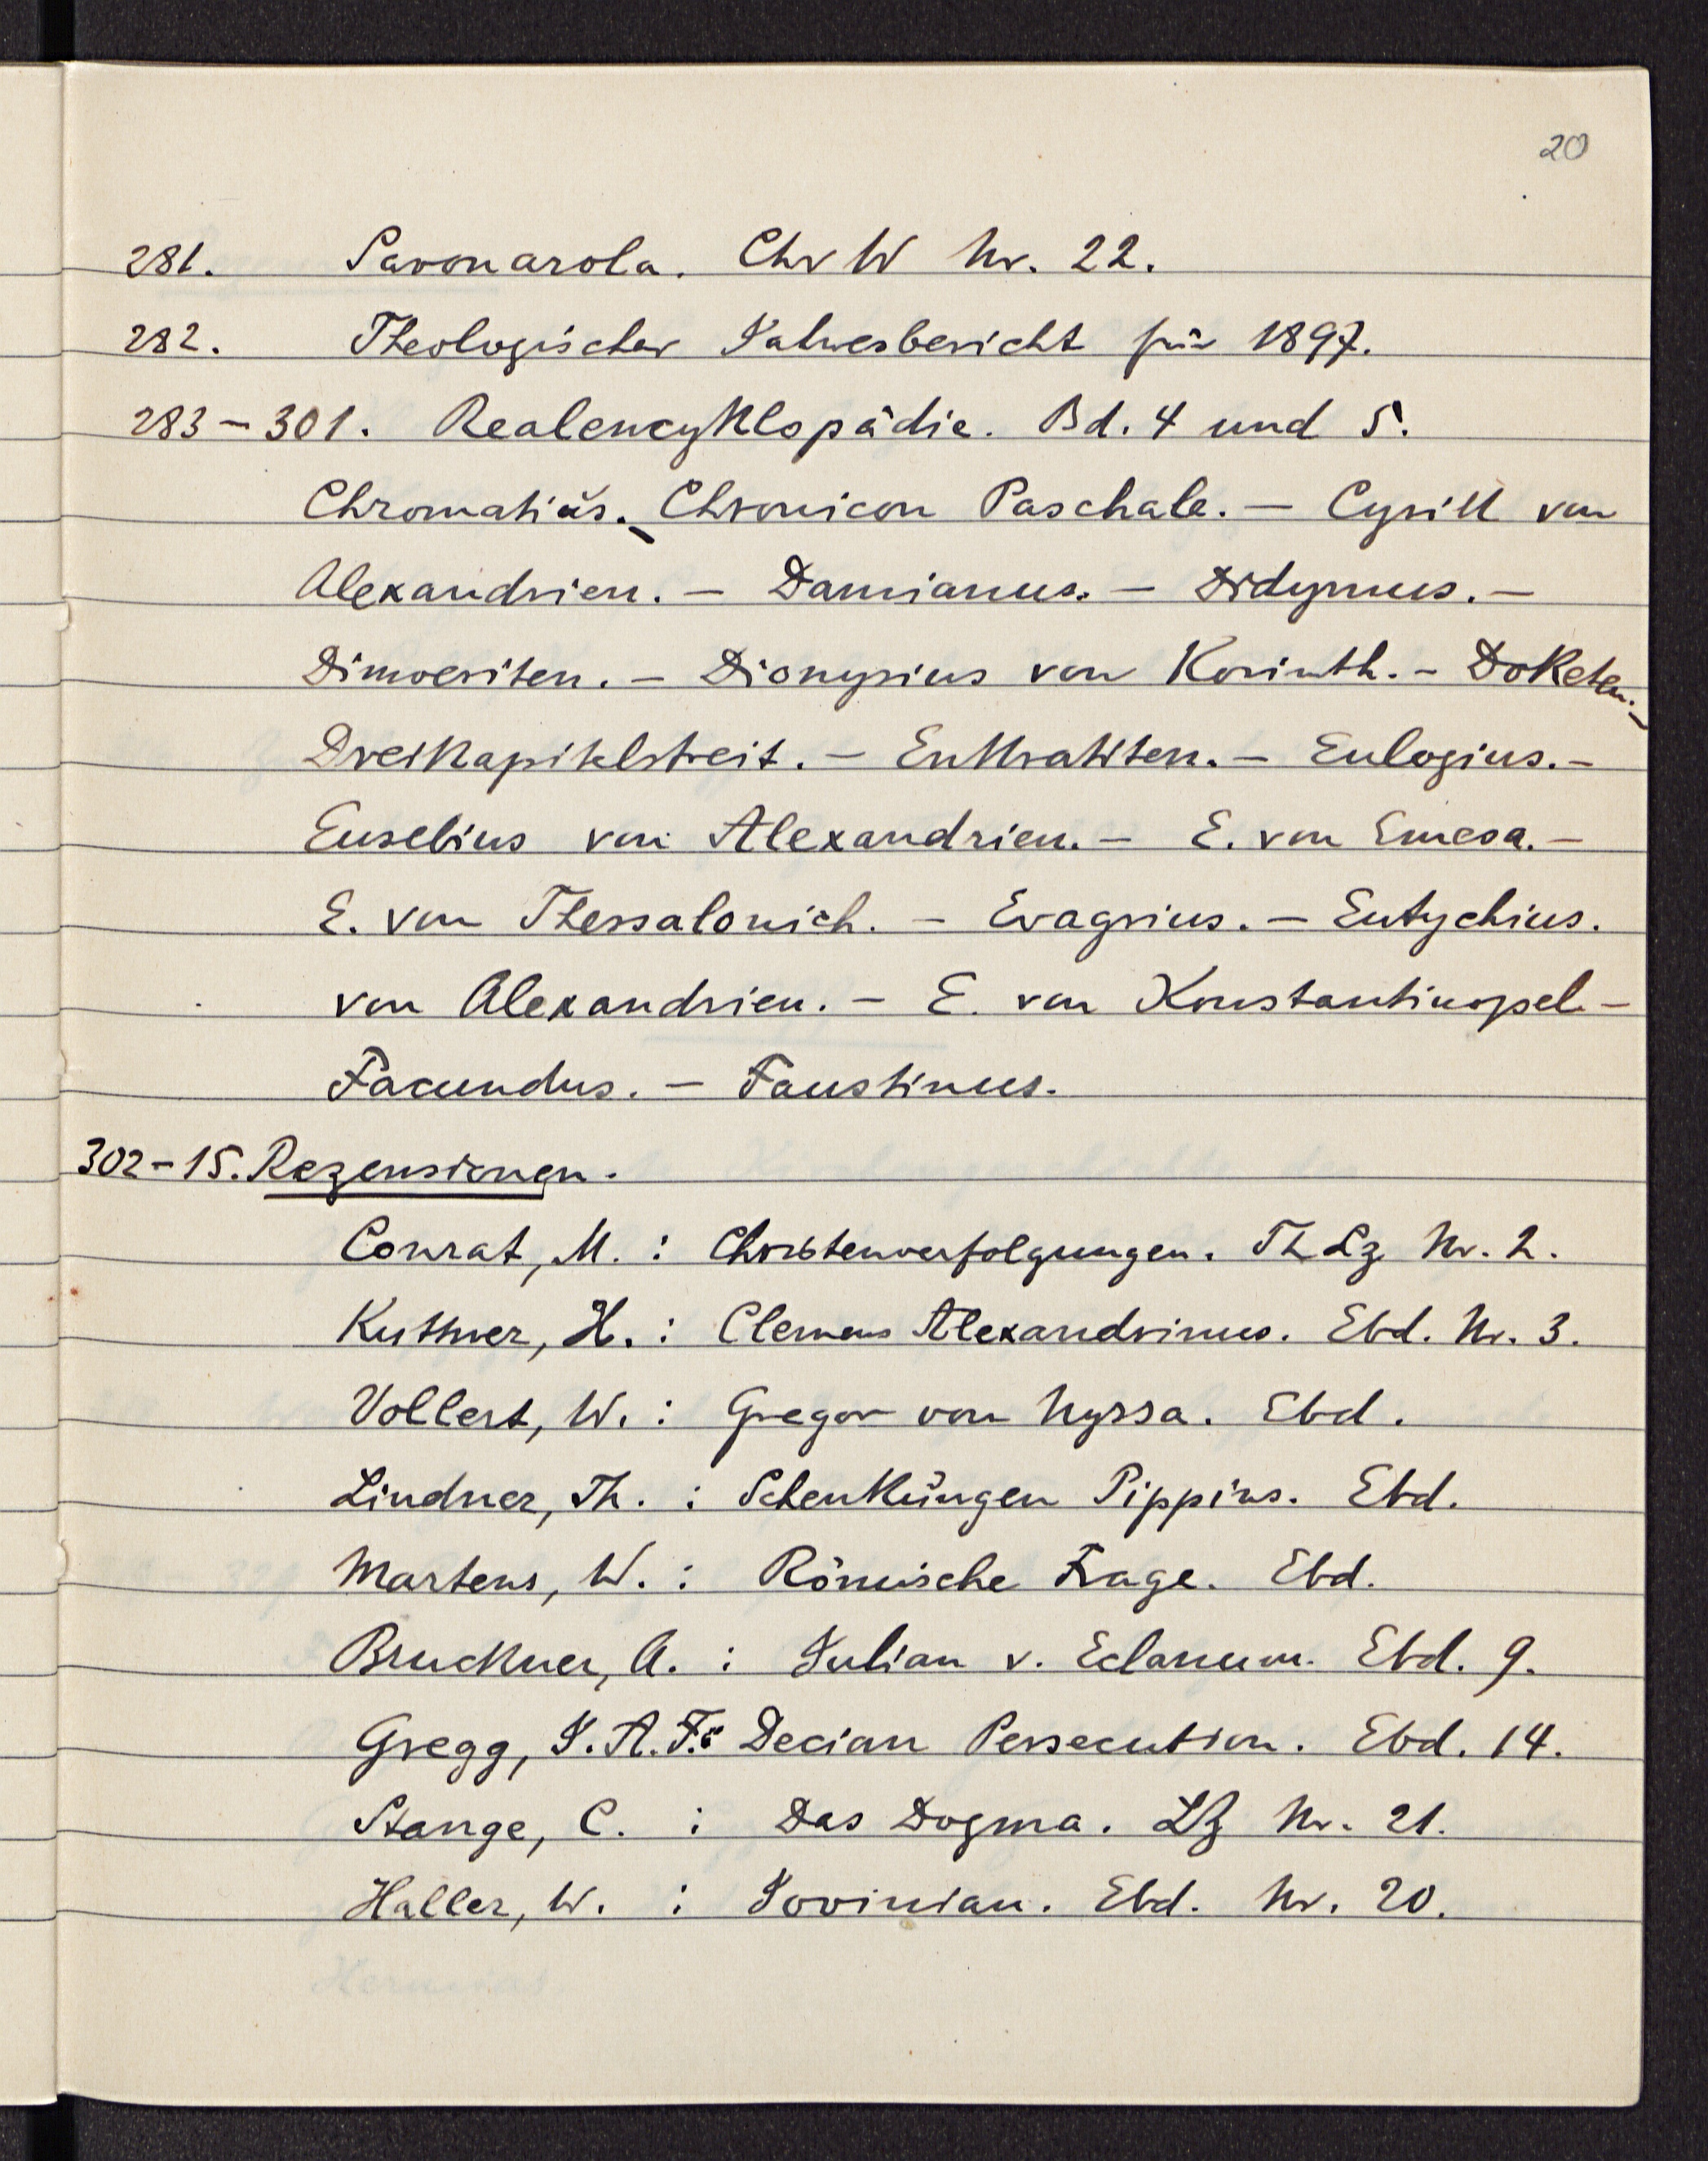 20
281. Savonarola. Chr W Nr. 22.
282. Theologischer Jahresbericht für 1897.
283-301. Realencyklopädie. Bd. 4 und 5.
Chromatius. - Chronicon Paschale. - Cyrill von
Alexandrien. - Damianus. - Didymus. -
Dimoeriten. - Dionysius von Korinth. - Doketen. -
Dreikapitelstreit. - Enkratiten. - Eulogius. -
Eusebius von Alexandrien. - E. von Emesa. -
E. von Thessalonich. - Evagrius. - Eutychius.
von Alexandrien. - E. von Konstantinopel -
Facundus. - Faustinus.
302-15. Rezensionen.
Conrat, M. : Christenverfolgungen. Th Lz Nr. 2.
Kutter, H. : Clemens Alexandrinus. Ebd. Nr. 3.
Vollert, W. : Gregor von Nyssa. Ebd.
Lindner, Th. : Schenkungen Pippins. Ebd.
Martens, W. : Römische Frage. Ebd.
Bruckner, A. : Julian v. Eclanum. Ebd. 9.
Gregg, J. A. F. : Decian Persecution. Ebd. 14.
Stange, C. : Das Dogma. LZ Nr. 21.
Haller, W. : Jovinian. Ebd. Nr. 20.